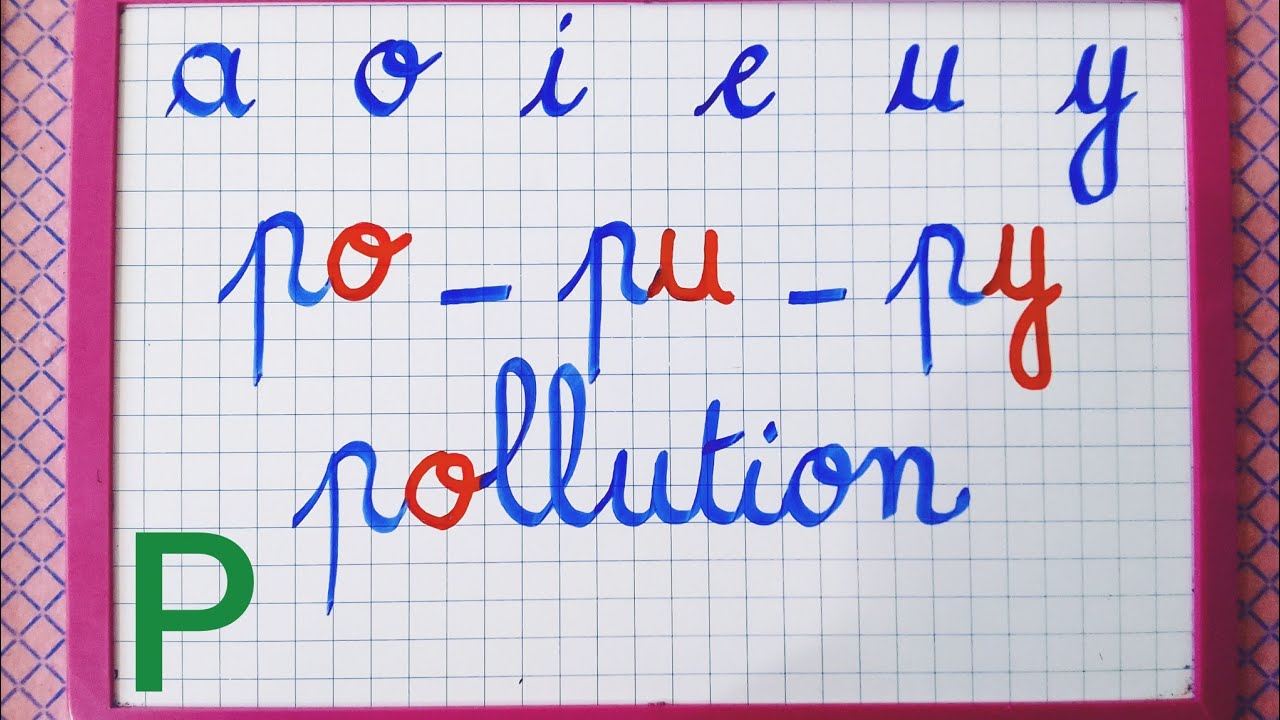 a o i e u y
po - pu - py
pollution
P